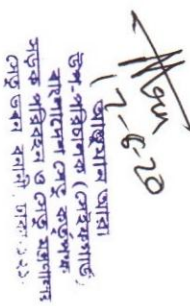 ২-৬-২০
(আঞ্জুমান আরা)
উপ-পরিচালক (লেইকশার্ড)
বাংলাদেশ সেতু কর্তৃপক্ষ
সড়ক পরিবহন ও সেতু মন্ত্রণালয়
সেতু ভবন বনানী, ঢাকা-১২১২.